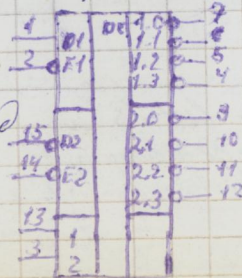 DC 1.0 7
1 D1 1.1 6
2 E1 1.2 5
1.3 4
2.0 9
15 D2 2.1 10
14 E2 2.2 11
2.3 12
13 1
3 2